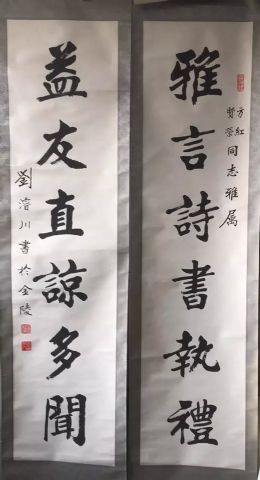 雅言詩書執禮
方紅
賢榮同志雅属
益友直諒多聞
劉濬川書於金陵